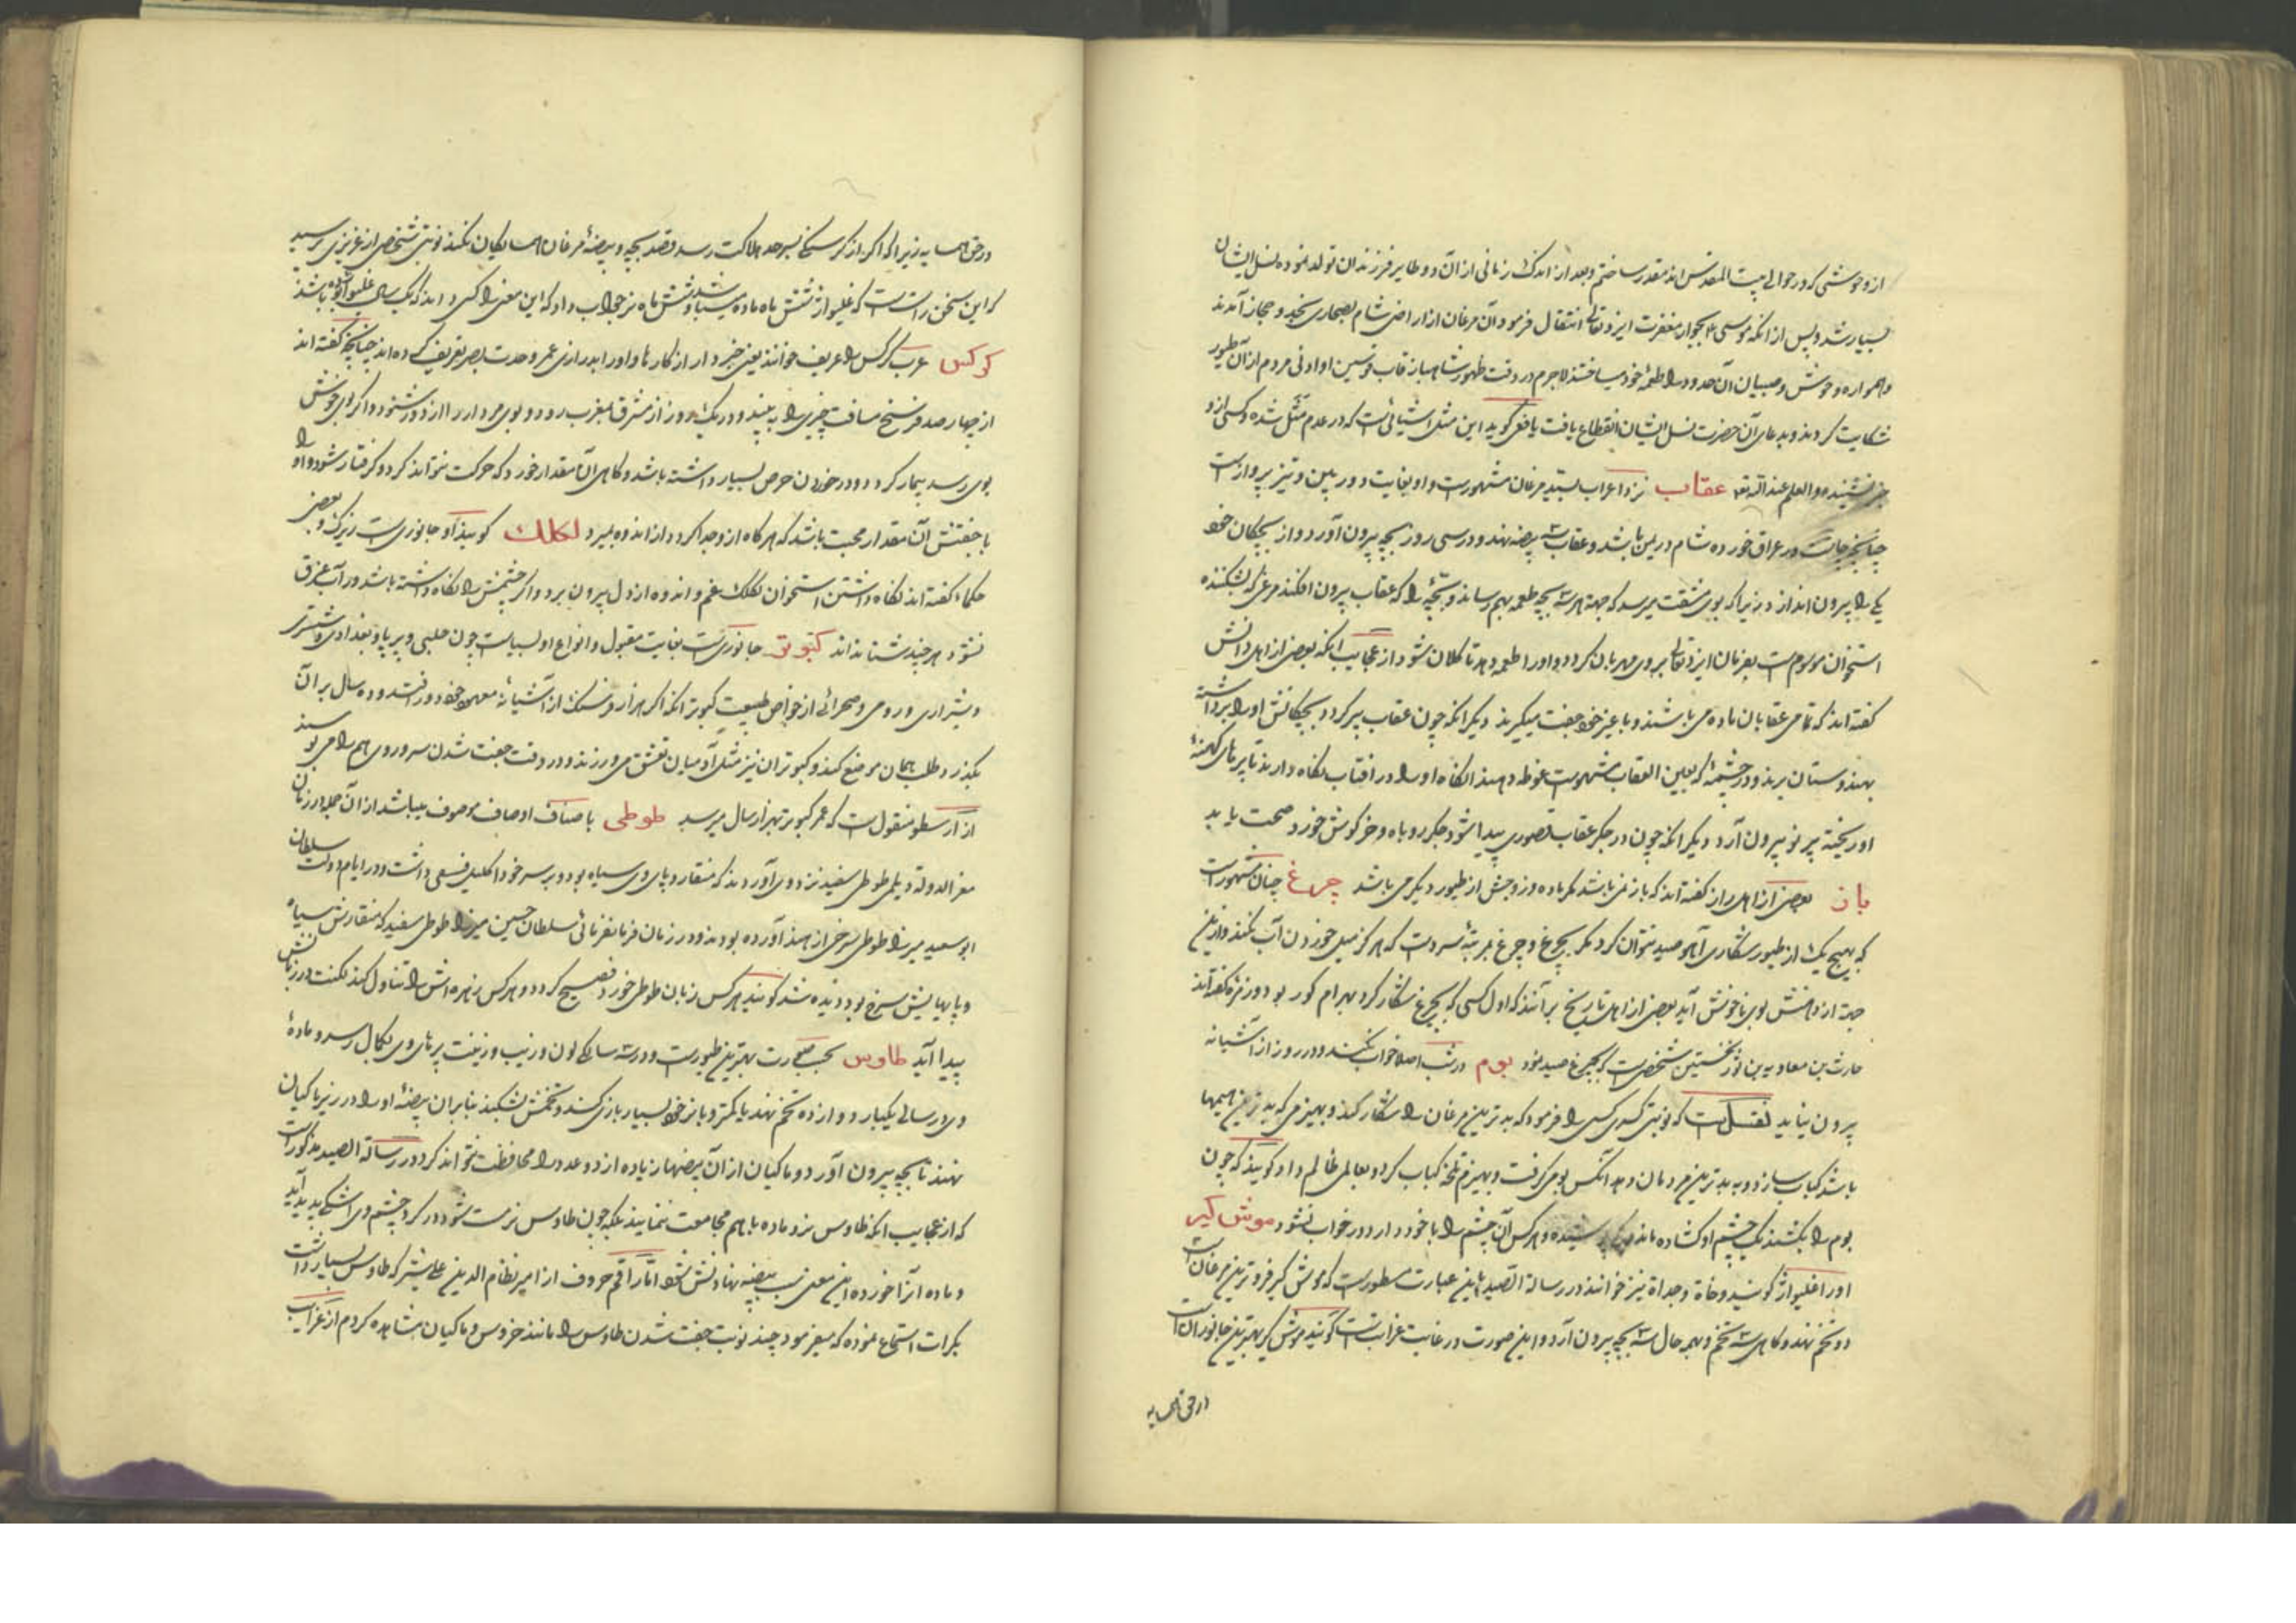 از وحوشی که در حوالی بیت المقدس اند مقدر ساختم و بعد از اندک زمانی از آن دو طایر فرزندان تولد نموده نسل ایشان
بسیار شد و پس از آنکه موسی ع بجوار مغفرت ایزد تعالی انتقال فرمود آن مرغان از اراضی شام بصحاری نجد و حجاز آمدند
و همواره وحوش و صبیان آن حدود را طعمهٔ خود میساختند لاجرم در وقت ظهور شاهباز قاب قوسین او ادنی مردم از آن طیور
شکایت کردند و بدعای آن حضرت نسل ایشان انقطاع یافت یافعی گوید این مثل اشیائی است که در عدم مثل شده و کسی از او
خبر نشنیده و العلم عند الله تعه عقاب نزد اعراب سید مرغان مشهورست و او بغایت دوربین و تیز پروازست
چنانچه چاشت در عراق خورده شام در یمن باشد و عقاب سه بیضه نهد و در سی روز بچه بیرون آورد و از بچکان خود
یکی را بیرون اندازد زیرا که بوی مشقت میرسد که جهة هر سه بچه طعمه بهم رساند و بچهٔ را که عقاب بیرون افکند مرغی که بشکننده
استخوان موسوم است بفرمان ایزد تعالی بروی مهربان گردد و او را طعمه دهد تا کلان شود از عجایب آنکه بعضی از اهل دانش
گفته اند که تمامی عقابان ماده می باشند و با غیر خود جفت میگیرند دیگر آنکه چون عقاب پیر گردد بچکانش او را برداشته
بهندوستان برند و در چشمهٔ که بعین العقاب مشهورست غوطه دهند آنگاه او را در افتاب نگاه دارند تا پرهای کهنهٔ
او ریخته پر نو بیرون آرد دیگر آنکه چون در جگر عقاب قصوری پیدا شود جگر روباه و خرگوش خورد صحت یابد
باز بعضی از اهل راز گفته اند که باز نمی باشد مگر ماده و زوجش از طیور دیگر می باشد چرغ چنان مشهورست
که بهیچ یک از طیور شکاری آهو صید نتوان کرد مگر بچرغ و چرغ بمرتبهٔ سردست که هرگز میل خوردن آب نکند و ازین
جهة از دهنش بوی ناخوش آید بعضی از اهل تاریخ برآنند که اول کسی که بچرغ شکار کرد بهرام گور بود و زمره گفته اند
حارث بن معاویه بن ثور نخستین شخصی است که بچرغ صید نمود بوم در شب اصلا خواب نکند و در روز از آشیانه
بیرون نیاید نقلست که نوبتی کسری کسی را فرمود که بدترین مرغان را شکار کند و بهیزمی که بدترین هیمها
باشد کباب سازد و به بدترین مردمان دهد آنکس بومی گرفت و بهیزم تلخه کباب کرد و بعاملی ظالم داد گویند که چون
بوم را بکشند یک چشم او گشاده ماند و یکی پوشیده و هر کس آن چشم را با خود دارد در خواب نشود موش گیر
او را غلیواژ گویند و حداة نیز خوانند در رسالة الصید باین عبارت مسطورست که موش گیر فروترین مرغان است
دو تخم نهد و گاهی سه تخم و بهر حال سه بچه بیرون آرد و این صورت در غایت غرابت است گویند موش گیر بهترین جانوران است
در حق همسایه
در حق همسایه زیرا که اگر از گرسنگی بسرحد هلاکت رسد قصد بچه و بیضهٔ مرغان همسایگان نکند نوبتی شخصی از عزیزی پرسید
که این سخن راست است که غلیواژ شش ماه ماده میباشد و شش ماه نر جواب داد که این معنی را کسی داند که یک سال غلیواژ بوده باشد
کرکس عرب کرکس را عریف خوانند یعنی خبردار از کارها و او را بدرازی عمر و حدت بصر تعریف کرده اند چنانچه گفته اند
از چهار صد فرسخ مسافت چیزی را به بیند و در یک روز از مشرق بمغرب رود و بوی مردار را از دور شنود و اگر بوی خوش
بوی رسد بیمار گردد و در خوردن حرص بسیار داشته باشد و گاهی آن مقدار خورد که حرکت نتواند کرد و گرفتار شود و او را
با جفتش آن مقدار محبت باشد که هر گاه از او جدا گردد از اندوه بمیرد لکلک گویند او جانوری است زیرک و بعضی
حکما گفته اند نگاه داشتن استخوان لکلک غم و اندوه از دل بیرون برد و اگر چشمش را نگاه داشته باشد در آب غرق
نشود هر چند شنا نداند کبوتر جانوریست بغایت مقبول و انواع او بسیارست چون حلبی و پرپا و بغدادی و شستری
و شیرازی و رومی و صحرائی از خواص طبیعت کبوتر آنکه اگر هزار فرسنگ از آشیانهٔ معهود خود دور افتد و ده سال بر آن
بگذرد طلب همان موضع کند و کبوتران نیز مثل آدمیان تعشق می ورزند و در وقت جفت شدن سر و روی هم را می بوسند
از ارسطو منقول است که عمر کبوتر بهزار سال میرسد طوطی باصناف اوصاف موصوف میباشد از آن جمله در زمان
معز الدوله دیلمی طوطی سفید نزد وی آوردند که منقار و پای وی سیاه بود و بر سر خود اکلیل فستقی داشت و در ایام دولت سلطان
ابو سعید میرزا طوطی سرخی از هند آورده بودند و در زمان فرمانفرمائی سلطان حسین میرزا طوطی سفید که منقارش سیاه
و پاهایش سرخ بود دیده شد گویند هر کس زبان طوطی خورد فصیح گردد و هر کس زهره اش را تناول کند لکنت در زبانش
پیدا آید طاوس بحسب صورت بهترین طیورست و در سه سالگی لون و زیب و زینت پرهای وی بکمال رسد و مادهٔ
وی در سالی یکبار دوازده تخم نهد یا کمتر و با نر خود بسیار بازی کند و تخمش بشکند بنا بر آن بیضهٔ او را در زیر ماکیان
نهند تا بچه بیرون آورد و ماکیان از آن بیضها زیاده از دو عدد را محافظت نتواند کرد و در رسالة الصید مذکورست
که از عجایب آنکه طاوس نر و ماده با هم مجامعت ننمایند بلکه چون طاوس نر مست شود در گرد چشم وی اشکی پدید آید
و ماده آنرا خورده این معنی سبب بیضه نهادنش شود اما راقم حروف از امیر نظام الدین علیشیر که طاوس بسیار داشت
بکرات استماع نموده که میفرمود چند نوبت جفت شدن طاوس را مانند خروس و ماکیان مشاهده کردم از غرایب